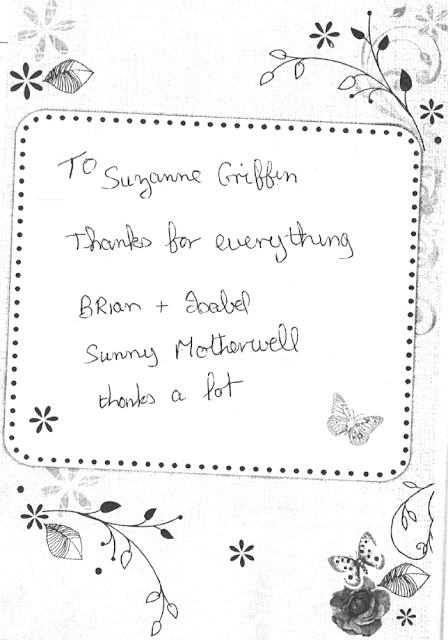 To Suzanne Griffin
Thanks for everything
BRian + Isabel
Sunny Motherwell
thanks a lot